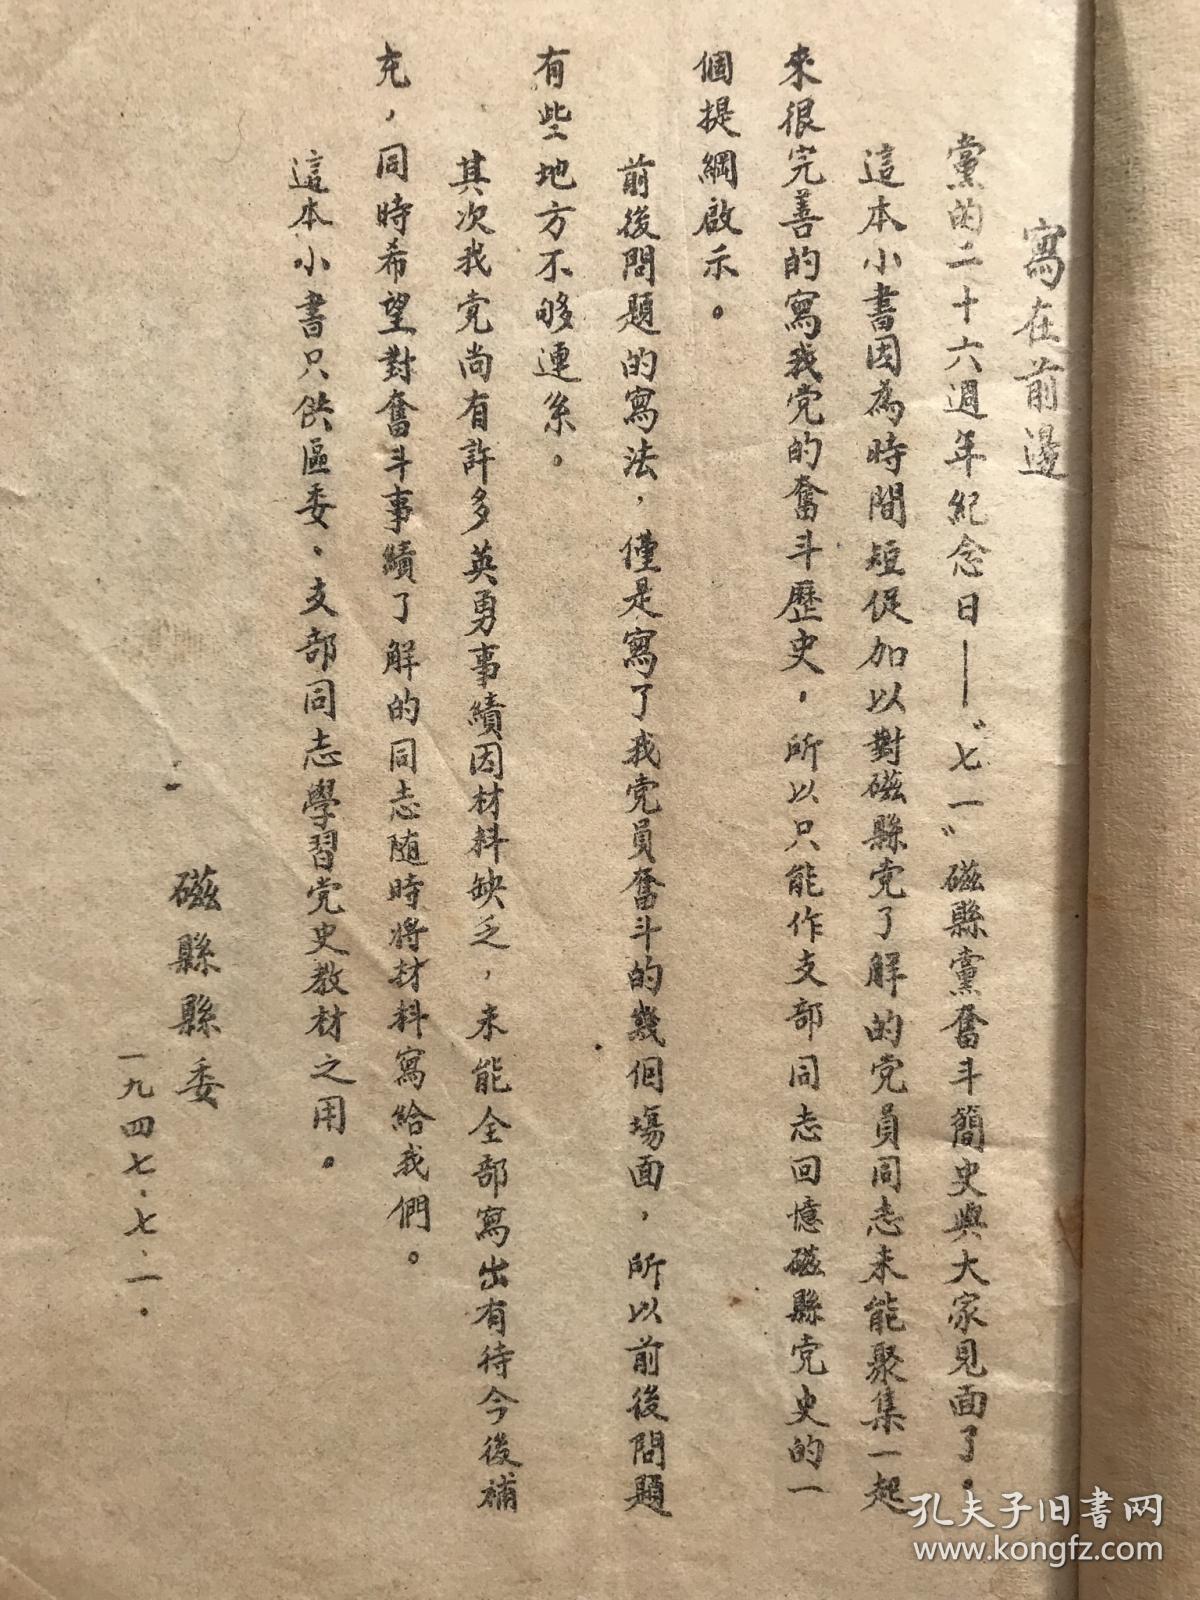 寫在前邊
黨的二十六週年紀念日——“七一”磁縣黨奮斗簡史與大家見面了。
這本小書因為時間短促加以對磁縣党了解的党員同志未能聚集一起
來很完善的寫我党的奮斗歷史，所以只能作支部同志回憶磁縣党史的一
個提綱啟示。
前後問題的寫法，僅是寫了我党員奮斗的幾個場面，所以前後問題
有些地方不够連系。
其次我党尚有許多英勇事績因材料缺乏，未能全部寫出有待今後補
充，同時希望對奮斗事績了解的同志随時将材料寫給我們。
這本小書只供區委．支部同志學習党史教材之用。
磁縣縣委
一九四七、七、一．
孔夫子旧书网
www.kongfz.com